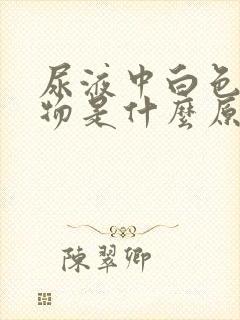 尿液中白色
物是什麼原
陳翠卿